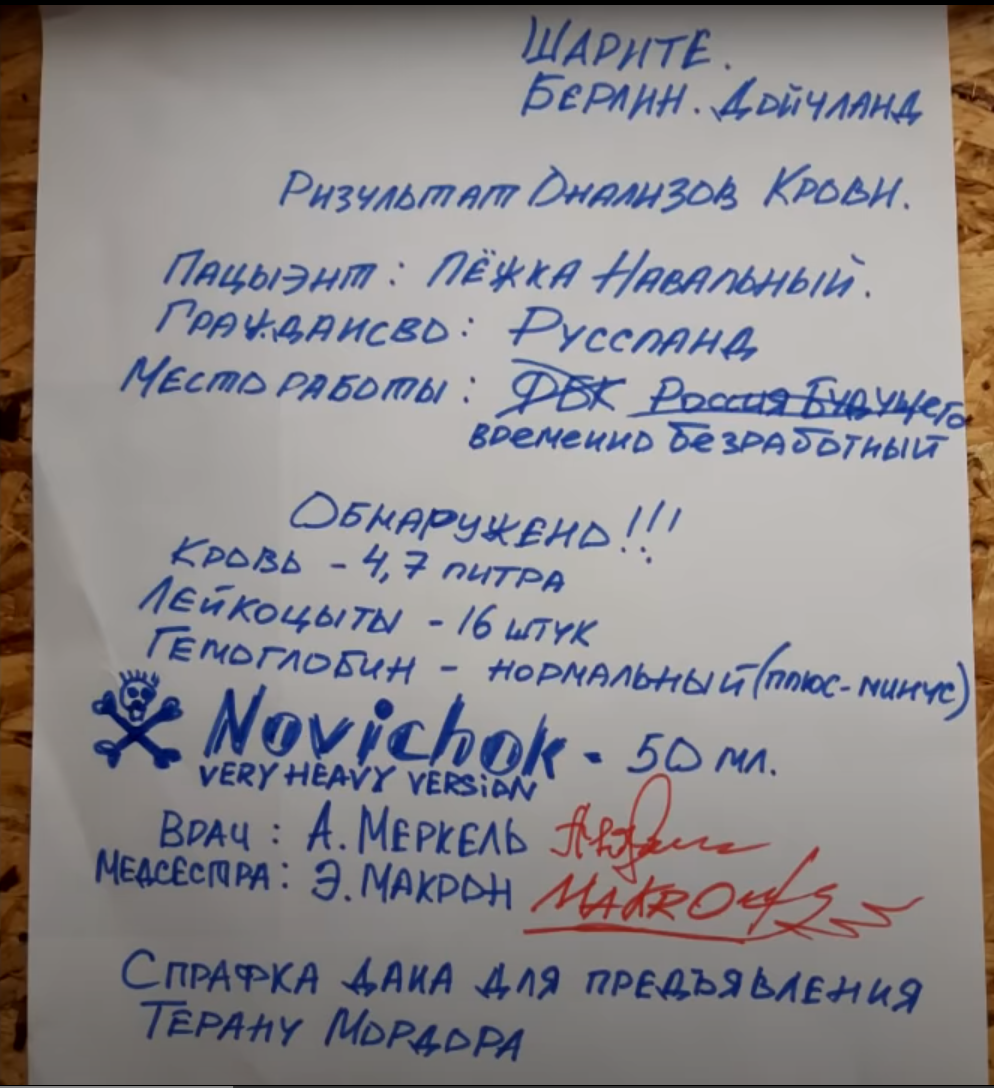 ШАРИТЕ.
БЕРЛИН. ДОЙЧЛАНД
РИЗУЛЬТАТ ОНАЛИЗОВ КРОВИ.
ПАЦЫЭНТ: ЛЁЖКА НАВАЛЬНЫЙ.
ГРАЖДАНСВО: РУССЛАНД
МЕСТО РАБОТЫ: ФБК РОССИЯ БУДУЩЕГО
ВРЕМЕННО БЕЗРАБОТНЫЙ
ОБНАРУЖЕНО!!!
КРОВЬ - 4,7 ЛИТРА
ЛЕЙКОЦЫТЫ - 16 ШТУК
ГЕМОГЛОБИН - НОРМАЛЬНЫЙ (ПЛЮС-МИНУС)
Novichok - 50 МЛ.
VERY HEAVY VERSION
ВРАЧ: А. МЕРКЕЛЬ
МЕДСЕСТРА: Э. МАКРОН MAKRON
СПРАФКА ДАНА ДЛЯ ПРЕДЪЯВЛЕНИЯ
ТЕРАНУ МОРДОРА